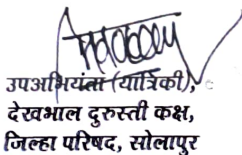 उपअभियंता (यांत्रिकी),
देखभाल दुरुस्ती कक्ष,
जिल्हा परिषद, सोलापुर